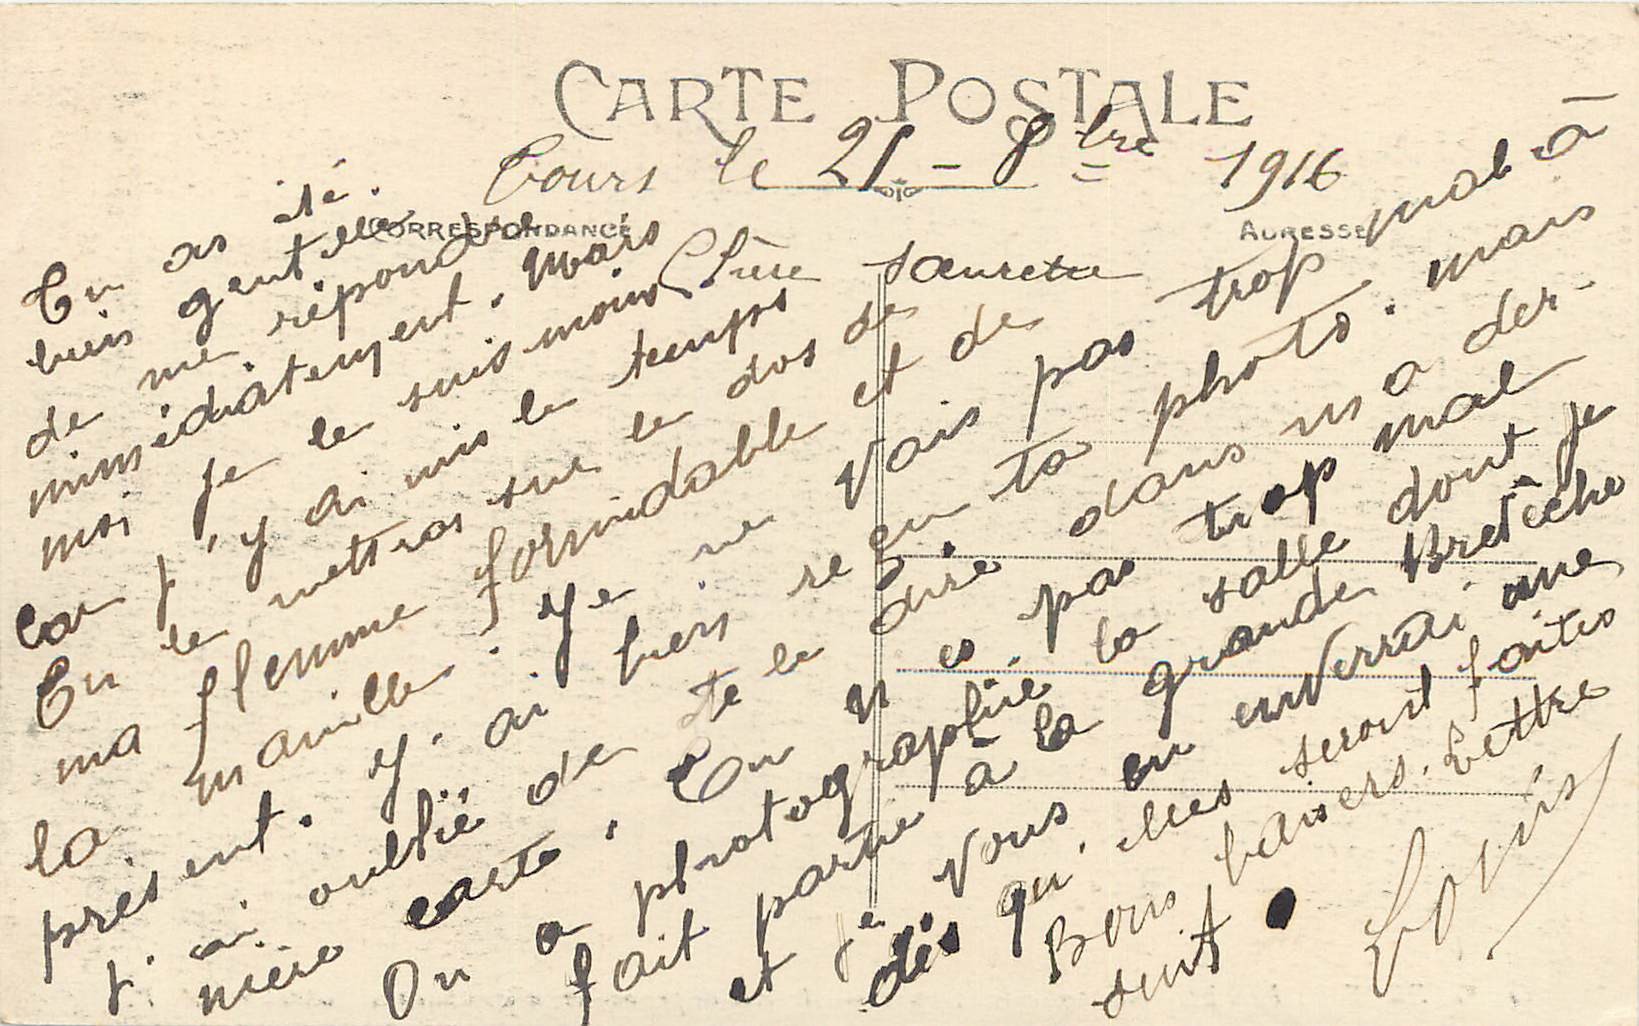 CARTE POSTALE
Tours le 21 - 8bre 1916
CORRESPONDANCE
ADRESSE
Chère soeurette
Tu as été
bien gentille
de me répondre
immédiatement. Mais
moi je le suis moins
car j'y ai mis le temps
Tu le mettras sur le dos de
ma flemme formidable et de
la manille. Je ne vais pas trop mal à
présent. J'ai bien reçu ta photo. mais
j'ai oublié de te le dire dans ma der-
nière carte. Tu n'es pas trop mal
On a photographié la salle dont je
fait partie à la grande Bretèche
et je vous en enverrai une
dès qu'elles seront faites
Bons baisers. Lettre
suit.
Louis